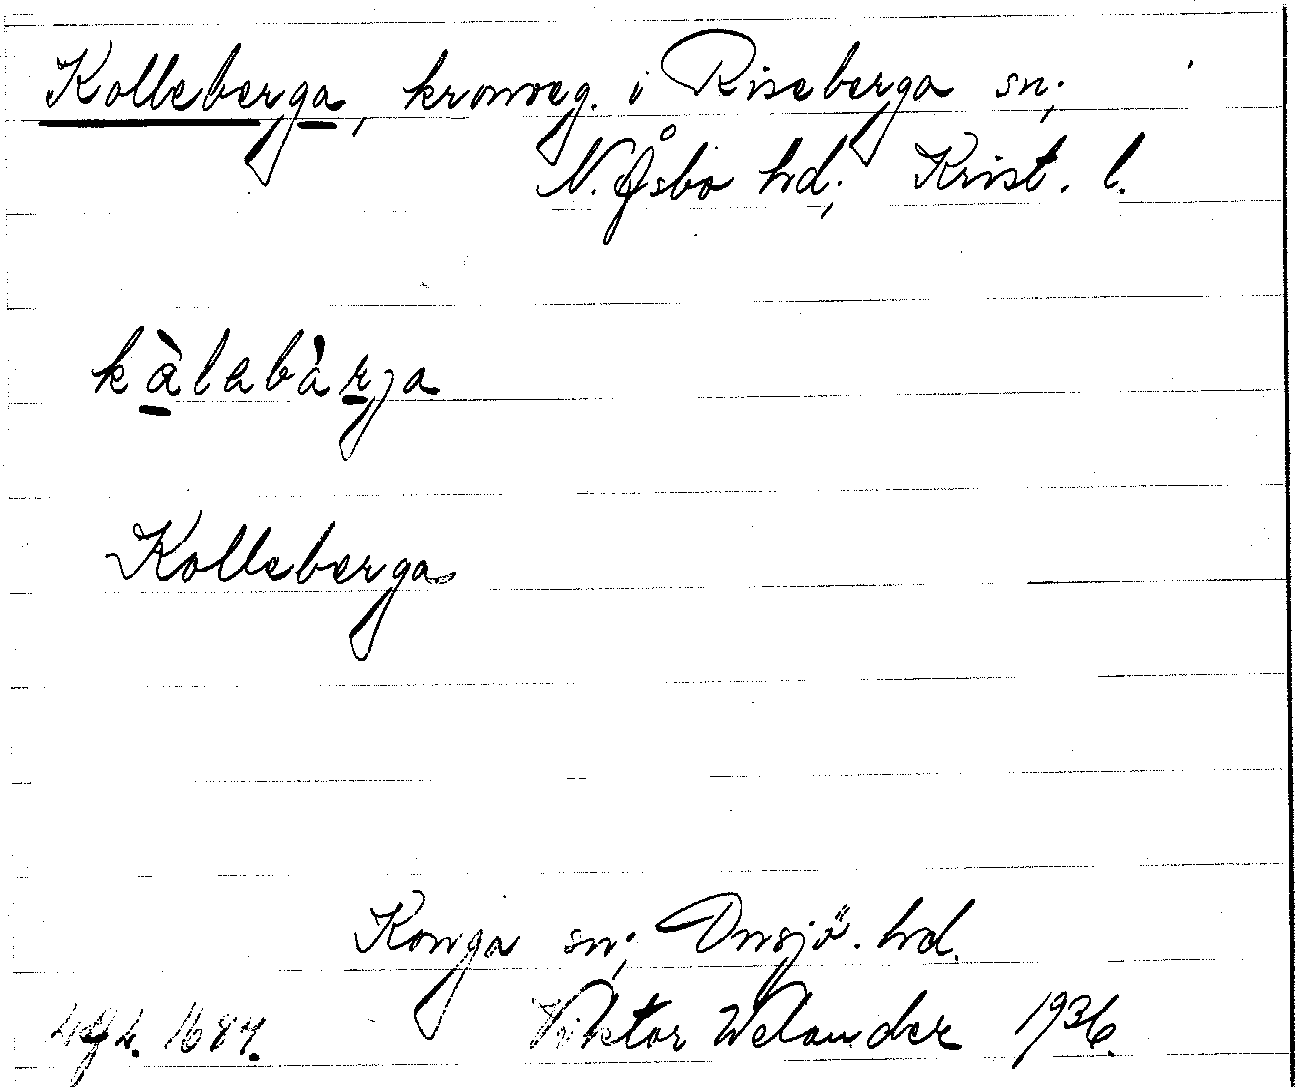 Kolleberga, kronoeg. i Riseberga sn;
N. Åsbo hd; Krist. l.
kàlabàrja
Kolleberga
Konga sn; Onsjö. hd.
1684. Viktor Welander 1936.